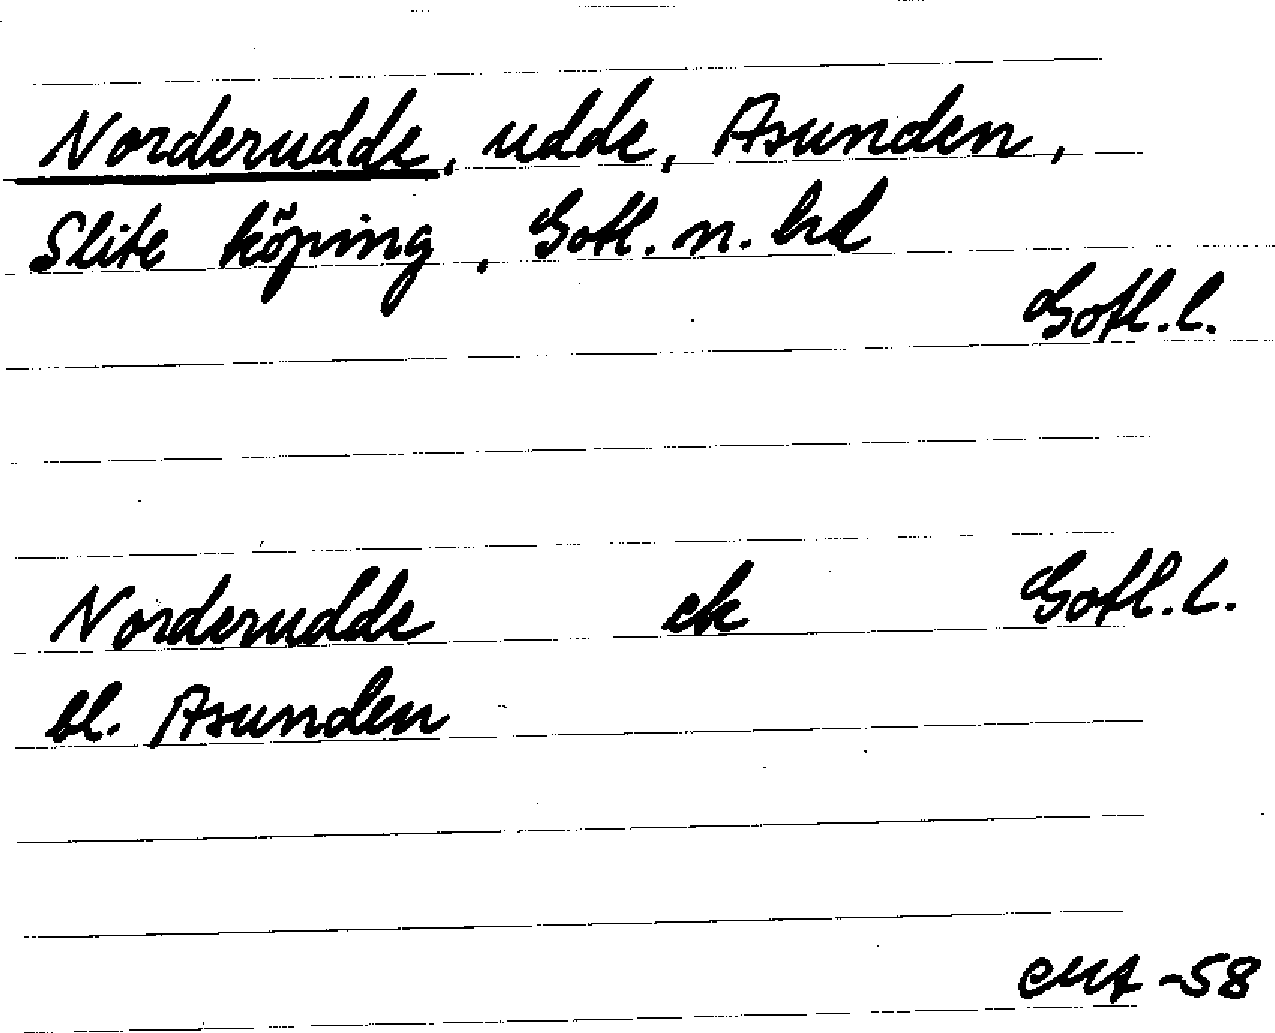 Norderudde, udde, Asunden,
Slite köping, Gotl. n. hd
Gotl. l.
Norderudde ek Gotl. l.
bl. Asunden
-58